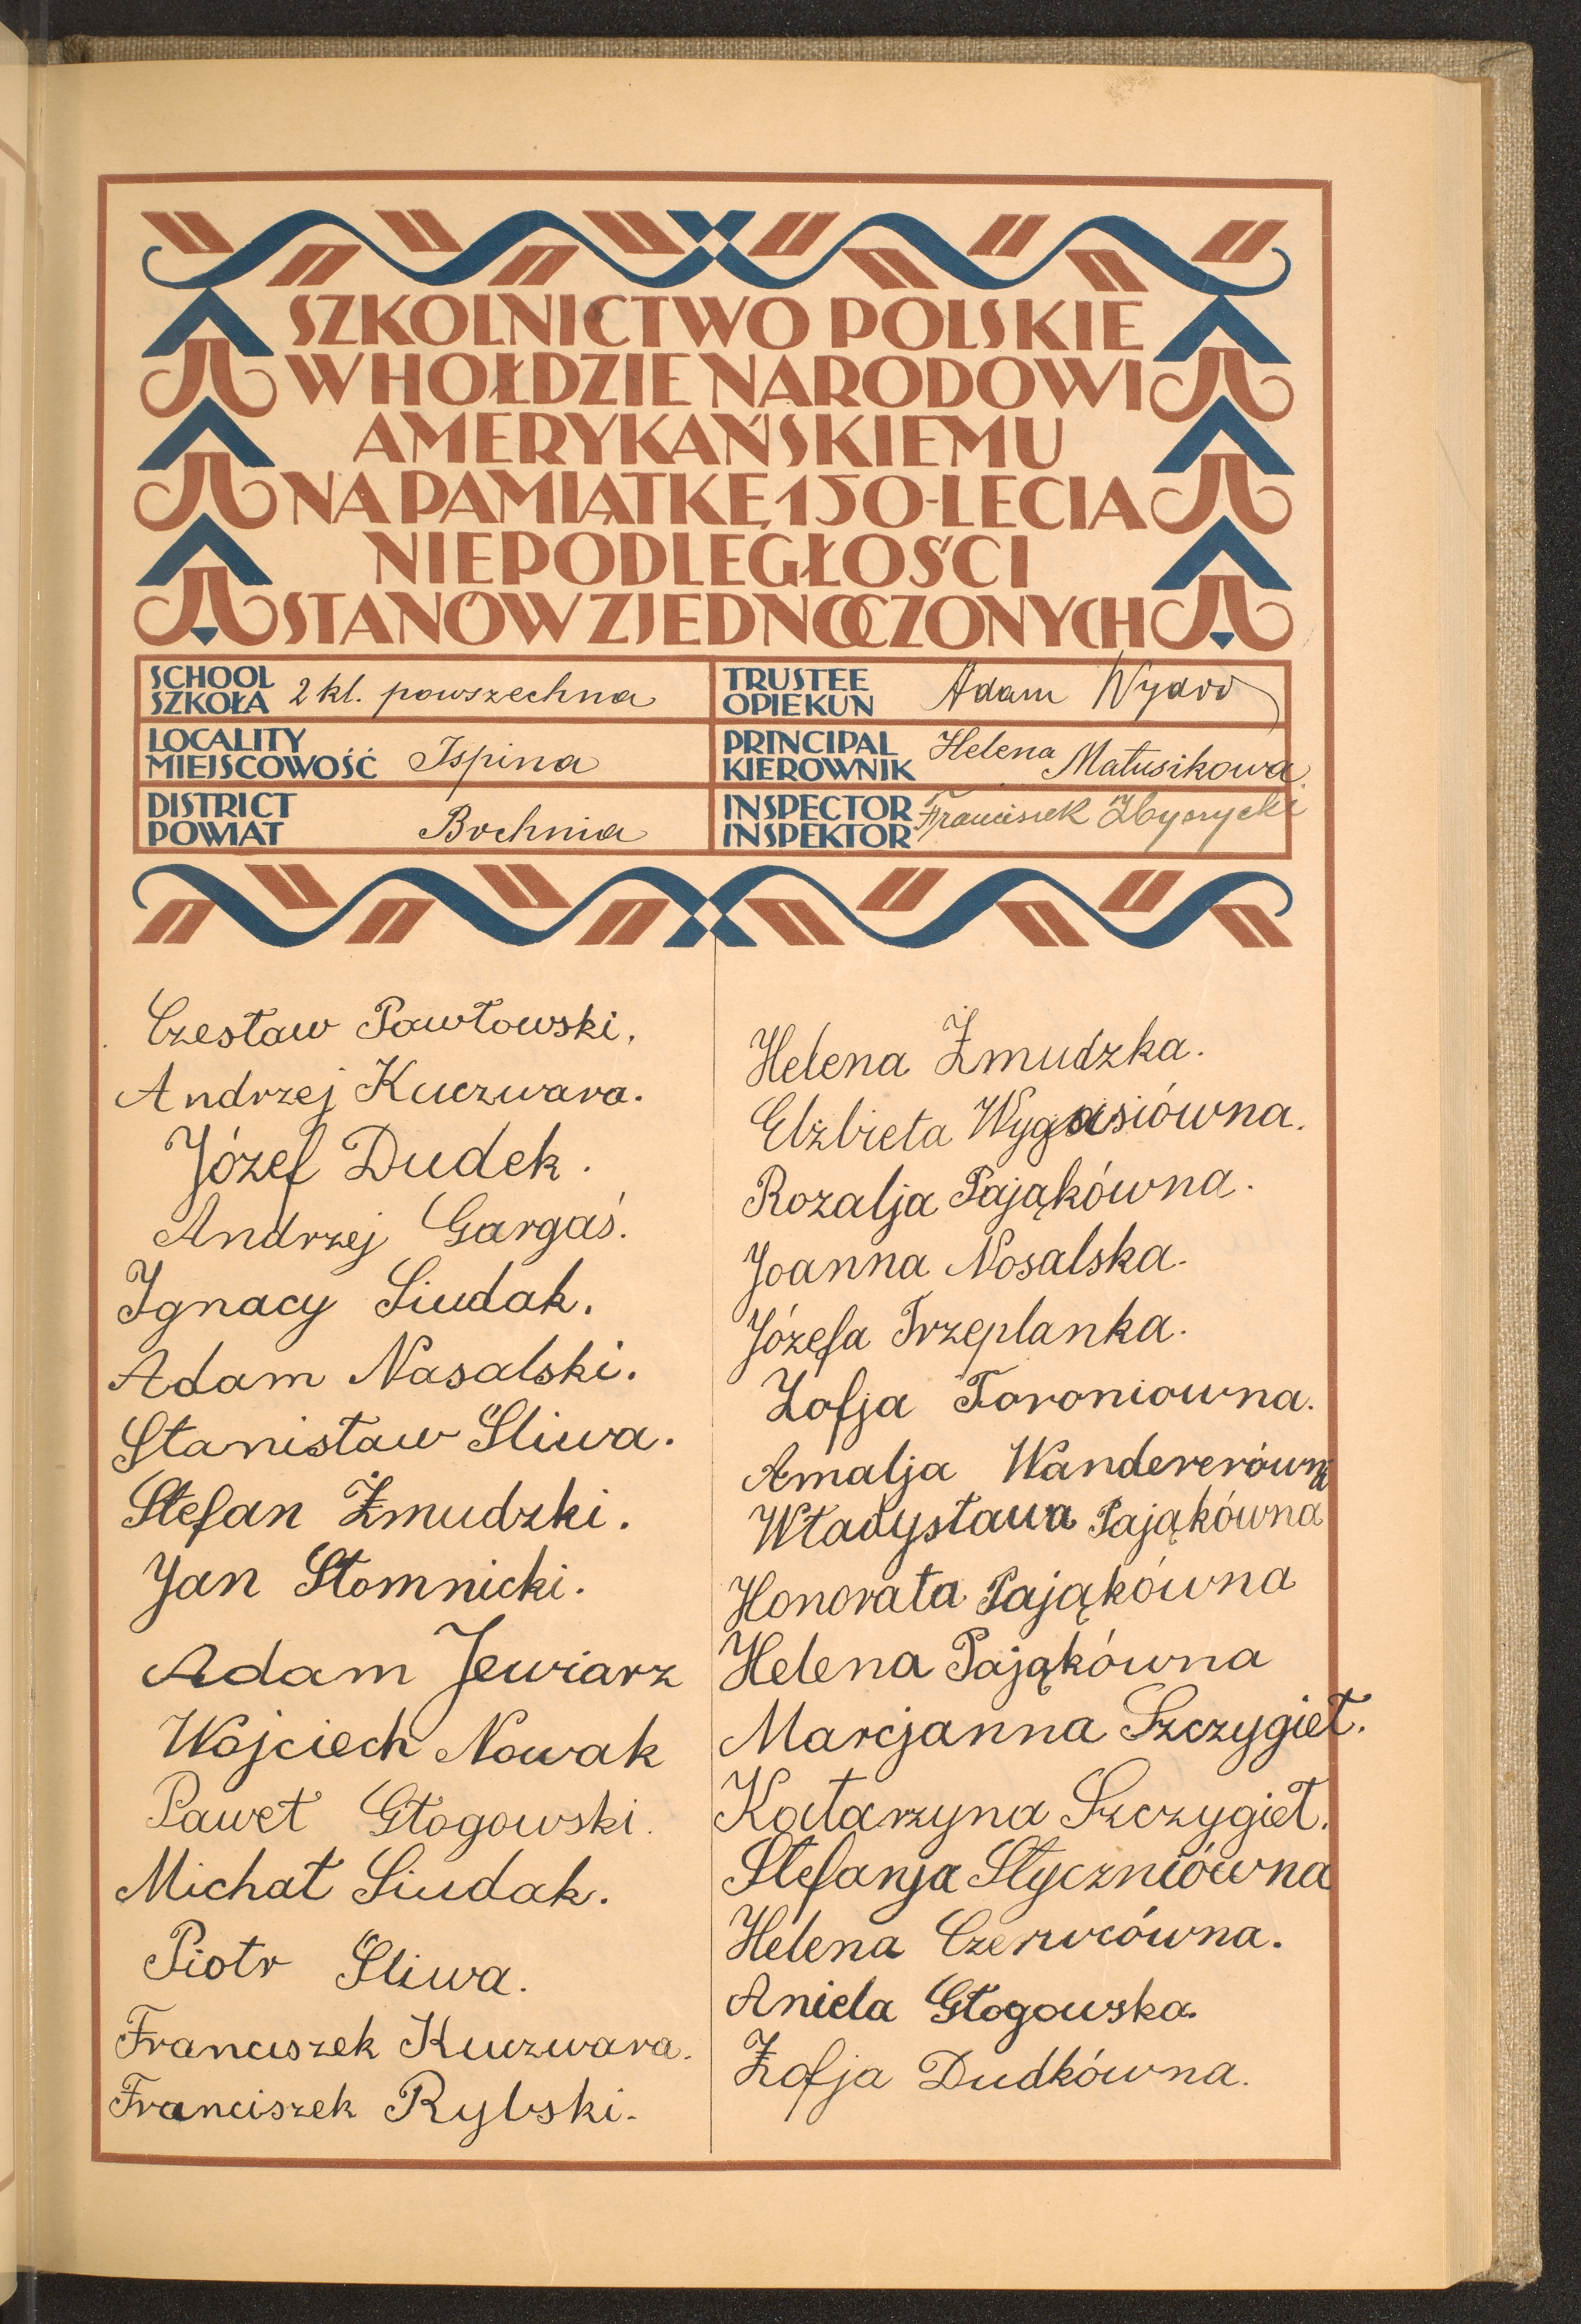 SZKOLNICTWO POLSKIE
W HOŁDZIE NARODOWI
AMERYKAŃSKIEMU
NA PAMIĄTKĘ 150-LECIA
NIEPODLEGŁOŚCI
STANÓW ZJEDNOCZONYCH
SCHOOL
SZKOŁA 2 kl. powszechna
TRUSTEE
OPIEKUN Adam
LOCALITY
MIEJSCOWOŚĆ Ispina
PRINCIPAL
KIEROWNIK Helena Matusikowa
DISTRICT
POWIAT Bochnia
INSPECTOR
INSPEKTOR Franciszek
Czesław Pawłowski.
Andrzej Kuczwara.
Józef Dudek.
Andrzej Gargaś.
Ignacy Siudak.
Adam Nasalski.
Stanisław Śliwa.
Stefan Żmudzki.
Jan Słomnicki.
Adam Jewiarz
Wojciech Nowak
Paweł Głogowski.
Michał Siudak.
Piotr Śliwa.
Franciszek Kuczwara.
Franciszek Rybski.
Helena Żmudzka.
Elżbieta Wygasiówna.
Rozalja Pająkówna.
Joanna Nosalska.
Józefa Trzeplanka.
Zofja Toroniowna.
Amalja Wandererówna
Władysława Pająkówna
Honorata Pająkówna
Helena Pająkówna
Marcjanna Szczygieł.
Katarzyna Szczygieł.
Stefanja Styczniówna
Helena Czerwcówna.
Aniela Głogowska.
Zofja Dudkówna.